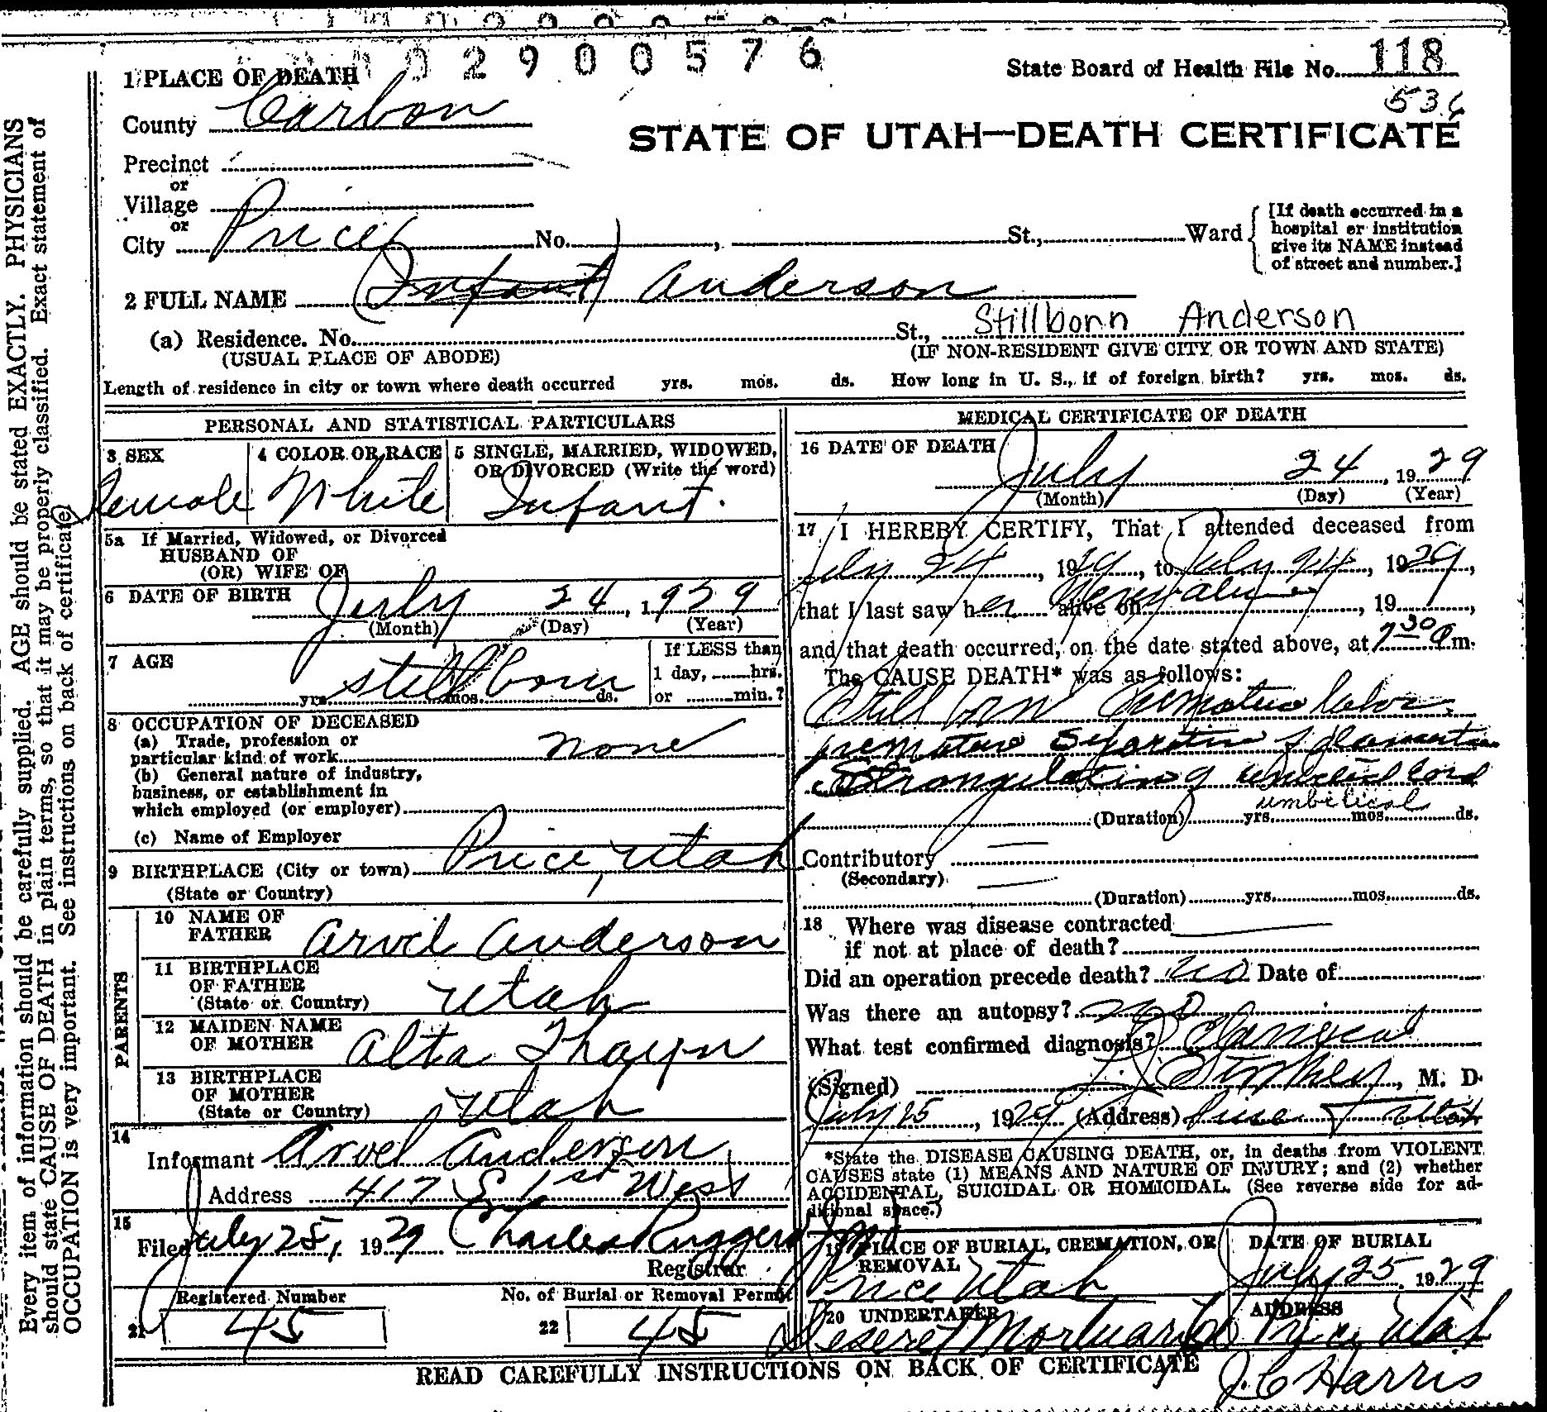 02900576
1 PLACE OF DEATH
State Board of Health File No. 118
536
County Carbon
STATE OF UTAH—DEATH CERTIFICATE
Precinct
or
Village
or
City Price No. , St., Ward
[If death occurred in a
hospital or institution
give its NAME instead
of street and number.]
2 FULL NAME (Infant) Anderson
(a) Residence. No. St., Stillborn Anderson
(USUAL PLACE OF ABODE) (IF NON-RESIDENT GIVE CITY OR TOWN AND STATE)
Length of residence in city or town where death occurred yrs. mos. ds. How long in U. S., if of foreign birth? yrs. mos. ds.
PERSONAL AND STATISTICAL PARTICULARS
3 SEX 4 COLOR OR RACE 5 SINGLE, MARRIED, WIDOWED,
OR DIVORCED (Write the word)
Female White Infant.
5a If Married, Widowed, or Divorced
HUSBAND OF
(OR) WIFE OF
6 DATE OF BIRTH July 24, 1929
(Month) (Day) (Year)
7 AGE stillborn
yrs. mos. ds.
If LESS than
1 day, hrs.
or min.?
8 OCCUPATION OF DECEASED
(a) Trade, profession or
particular kind of work none
(b) General nature of industry,
business, or establishment in
which employed (or employer)
(c) Name of Employer
9 BIRTHPLACE (City or town) Price, Utah
(State or Country)
PARENTS
10 NAME OF
FATHER Arvel Anderson
11 BIRTHPLACE
OF FATHER
(State or Country) Utah
12 MAIDEN NAME
OF MOTHER Alta Thayn
13 BIRTHPLACE
OF MOTHER
(State or Country) Utah
14
Informant Arvel Anderson
Address 417 S 1st West
15
Filed July 25, 1929 Charles Ruggeri
Registrar
Registered Number No. of Burial or Removal Permit
21 45 22 45
MEDICAL CERTIFICATE OF DEATH
16 DATE OF DEATH July 24, 1929
(Month) (Day) (Year)
17 I HEREBY CERTIFY, That I attended deceased from
July 24, 1929, to July 24, 1929,
that I last saw her alive on , 19 ,
and that death occurred, on the date stated above, at 7 30 m.
The CAUSE DEATH* was as follows:
Still born Premature labor.
premature separation of placenta
Strangulation of umbilical cord
umbilical
(Duration) yrs. mos. ds.
Contributory
(Secondary)
(Duration) yrs. mos. ds.
18 Where was disease contracted
if not at place of death?
Did an operation precede death? no Date of
Was there an autopsy? no
What test confirmed diagnosis?
(Signed) , M. D.
July 25, 1929 (Address) Price Utah
*State the DISEASE CAUSING DEATH, or, in deaths from VIOLENT
CAUSES state (1) MEANS AND NATURE OF INJURY; and (2) whether
ACCIDENTAL, SUICIDAL OR HOMICIDAL. (See reverse side for ad-
ditional space.)
19 PLACE OF BURIAL, CREMATION, OR
REMOVAL
Price Utah
DATE OF BURIAL
July 25, 1929
20 UNDERTAKER ADDRESS
Deseret Mortuary Price Utah
J.C Harris
READ CAREFULLY INSTRUCTIONS ON BACK OF CERTIFICATE
Every item of information should be carefully supplied. AGE should be stated EXACTLY. PHYSICIANS
should state CAUSE OF DEATH in plain terms, so that it may be properly classified. Exact statement of
OCCUPATION is very important. See instructions on back of certificate.